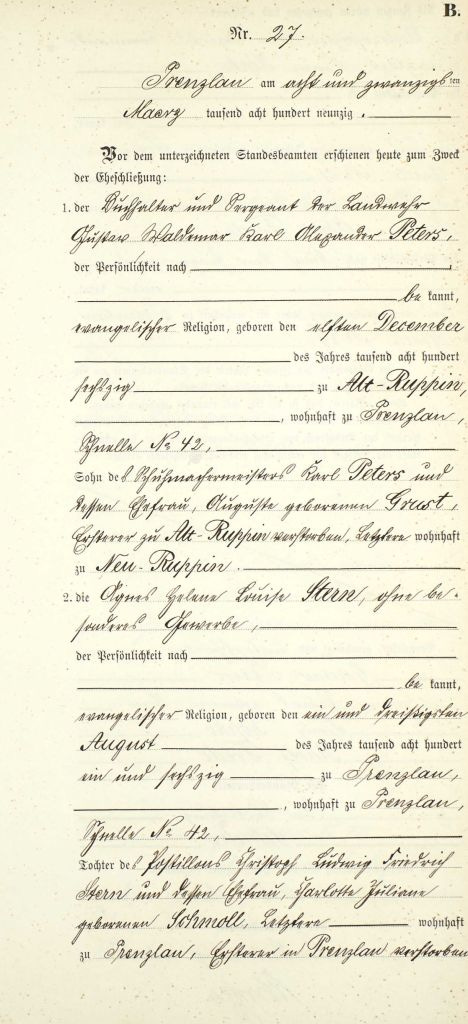 B.
Nr. 27.
Prenzlau am acht und zwanzigsten
Maerz tausend acht hundert neunzig.
Vor dem unterzeichneten Standesbeamten erschienen heute zum Zweck
der Eheschließung:
1. der Buchhalter und Sergeant der Landwehr
Gustav Waldemar Karl Alexander Peters,
der Persönlichkeit nach
bekannt,
evangelischer Religion, geboren den elften December
des Jahres tausend acht hundert
sechszig zu Alt-Ruppin,
, wohnhaft zu Prenzlau,
Schnelle No 42,
Sohn des Schuhmachermeisters Karl Peters und
dessen Ehefrau, Auguste geborenen Grust,
Ersterer zu Alt-Ruppin verstorben, Letztere wohnhaft
zu Neu-Ruppin.
2. die Agnes Helene Louise Stern, ohne be-
sonderes Gewerbe,
der Persönlichkeit nach
bekannt,
evangelischer Religion, geboren den ein und dreißigsten
August des Jahres tausend acht hundert
ein und sechszig zu Prenzlau,
, wohnhaft zu Prenzlau,
Schnelle No 42,
Tochter des Postillons Christoph Ludwig Friedrich
Stern und dessen Ehefrau, Charlotte Juliane
geborenen Schmoll, Letztere wohnhaft
zu Prenzlau, Ersterer in Prenzlau verstorben